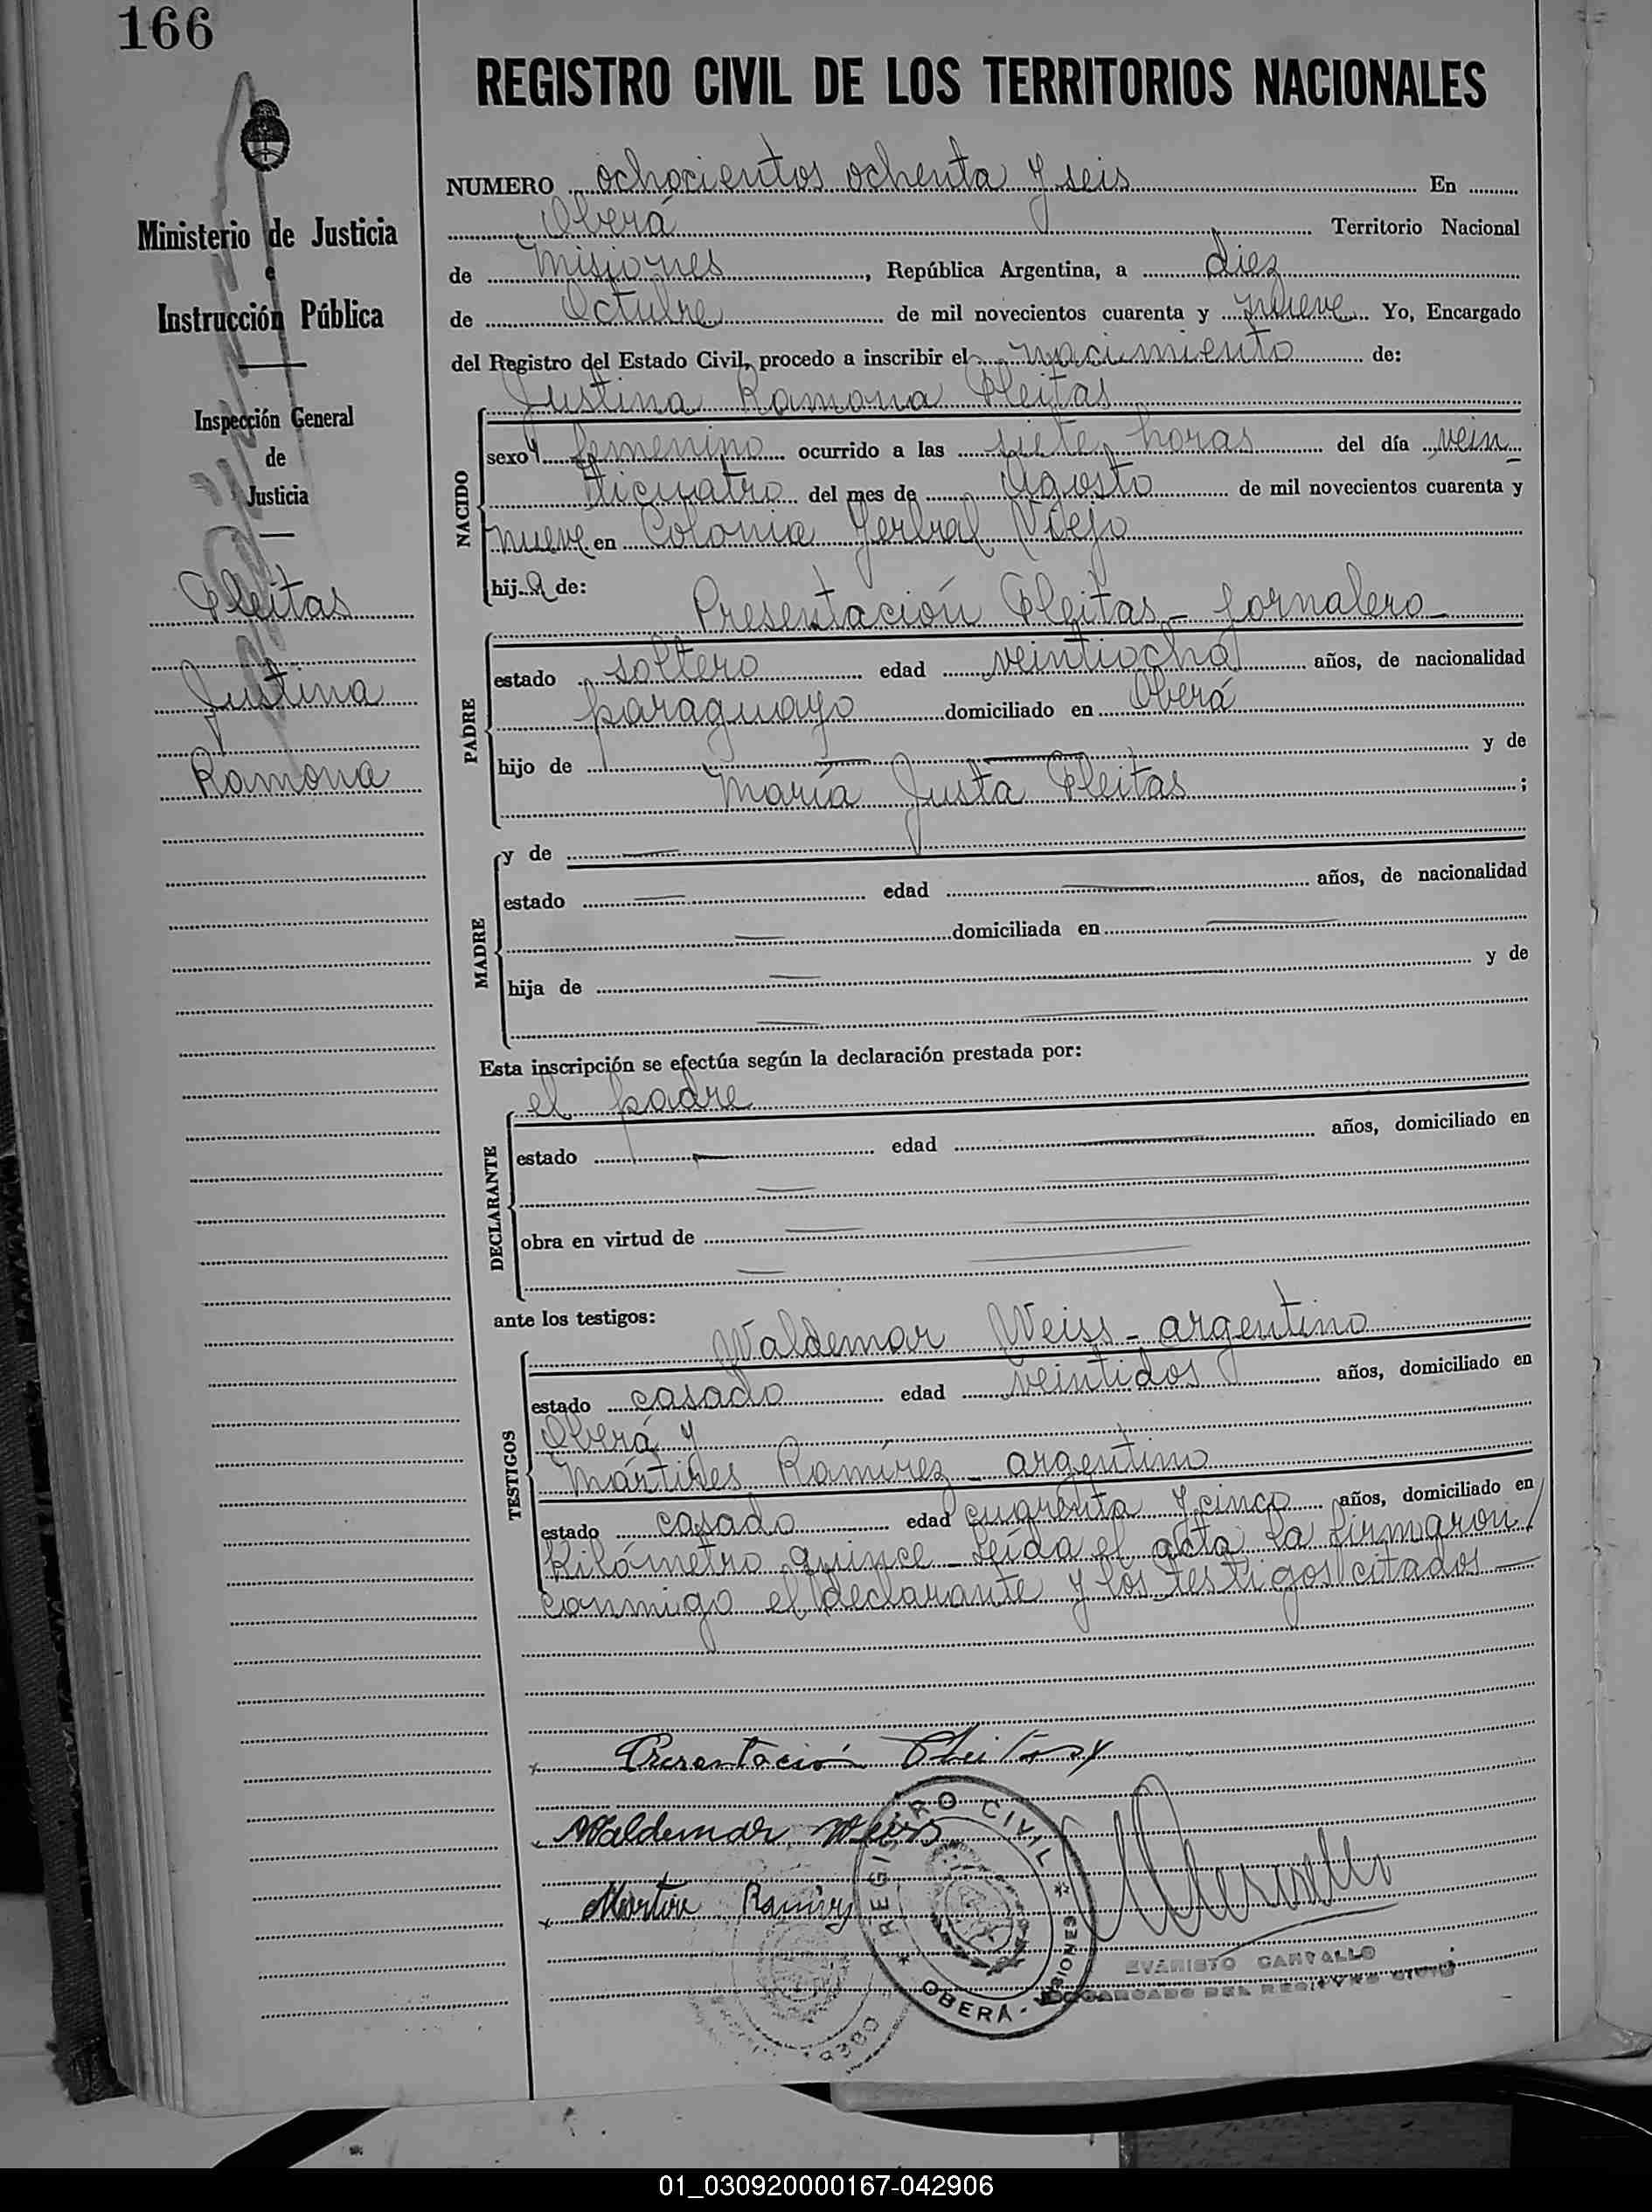 166
REGISTRO CIVIL DE LOS TERRITORIOS NACIONALES
Ministerio de Justicia
e
Instrucción Pública
Inspección General
de
Justicia
Pleitas
Justina
Ramona
NUMERO ochocientos ochenta y seis En
Oberá Territorio Nacional
de Misiones, República Argentina, a diez
de Octubre de mil novecientos cuarenta y nueve Yo, Encargado
del Registro del Estado Civil, procedo a inscribir el nacimiento de:
Justina Ramona Pleitas
NACIDO
sexo femenino ocurrido a las siete horas del día vein
ticuatro del mes de Agosto de mil novecientos cuarenta y
nueve en Colonia Yerbal Viejo
hija de:
Presentación Pleitas - jornalero -
PADRE
estado soltero edad veintiocho años, de nacionalidad
paraguayo domiciliado en Oberá
hijo de y de
María Justa Pleitas ;
MADRE
y de
estado edad años, de nacionalidad
domiciliada en
hija de y de
Esta inscripción se efectúa según la declaración prestada por:
el padre
DECLARANTE
estado edad años, domiciliado en
obra en virtud de
ante los testigos:
Waldemar Weiss - argentino
TESTIGOS
estado casado edad veintidos años, domiciliado en
Oberá y
Mártires Ramírez - argentino
estado casado edad cuarenta y cinco años, domiciliado en
Kilómetro quince - Leída el acta la firmaron
conmigo el declarante y los testigos citados -
Presentación Pleitas
Waldemar Weiss
Martire Ramirez
REGISTRO CIVIL
* OBERÁ - MISIONES *
EVARISTO CARVALLO
ENCARGADO DEL REGISTRO CIVIL
01_030920000167-042906